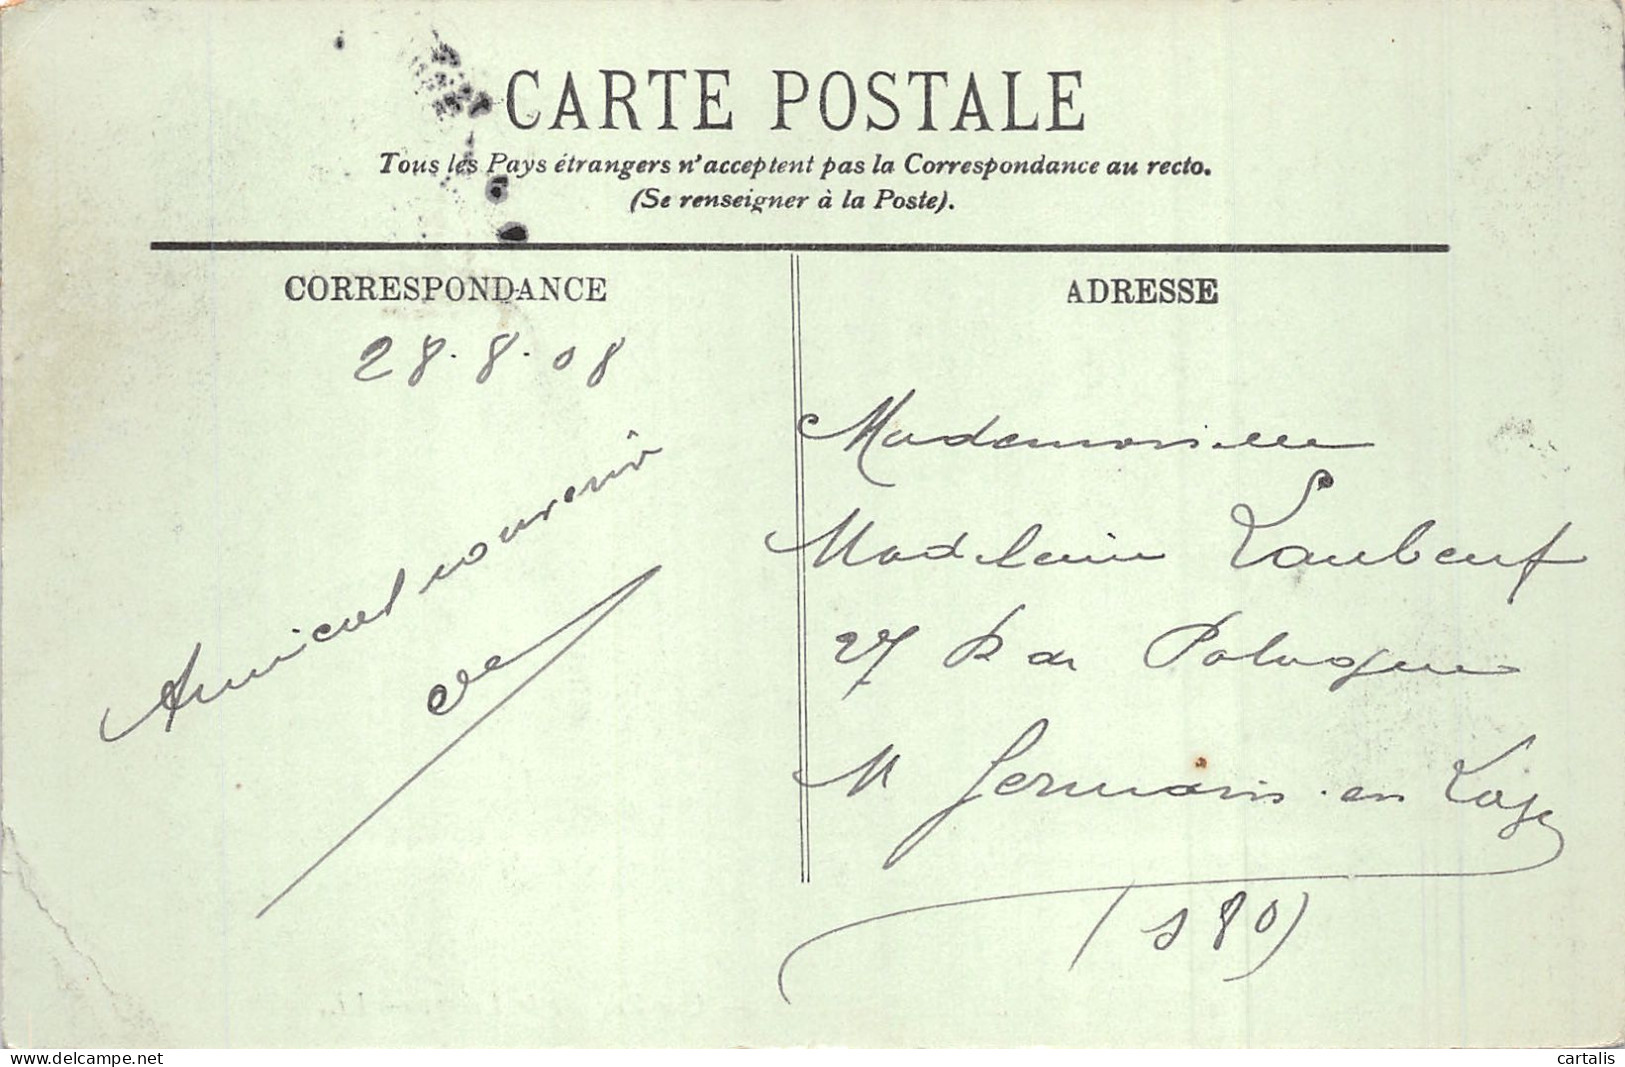 CARTE POSTALE
Tous les Pays étrangers n'acceptent pas la Correspondance au recto.
(Se renseigner à la Poste).
CORRESPONDANCE
28.8.08
Amical souvenir
ADRESSE
Mademoiselle
Madeleine Laubeuf
27 R de Pologne
St Germain-en Laye
(S & O)
www.delcampe.net
cartalis